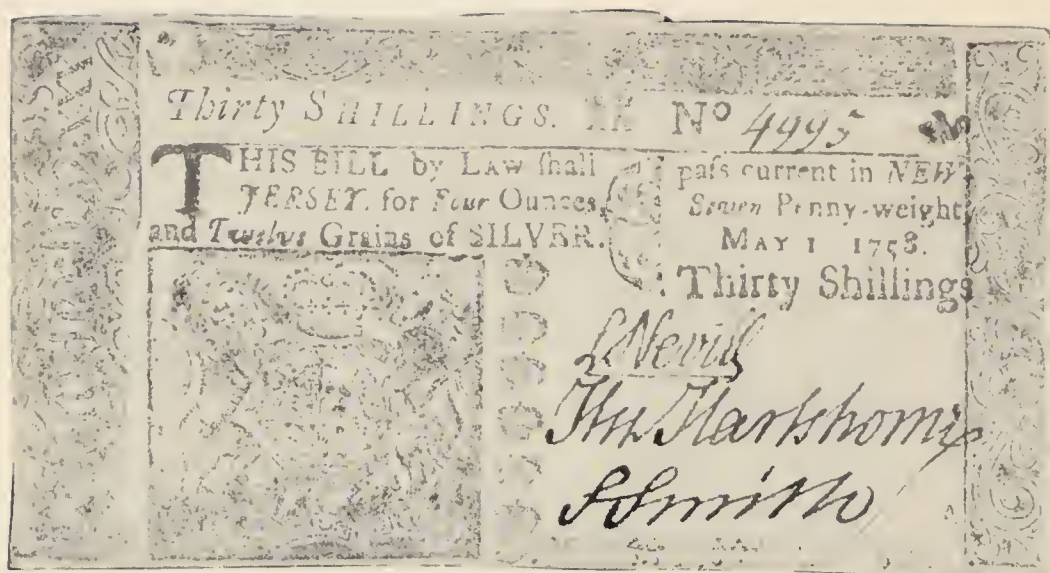 Thirty SHILLINGS. No 4995
THIS BILL by LAW ſhall paſs current in NEW
JERSEY, for Four Ounces, Seven Penny-weight
and Twelve Grains of SILVER. MAY 1 1758.
Thirty Shillings
S Nevill
Hartshorne
S Smith